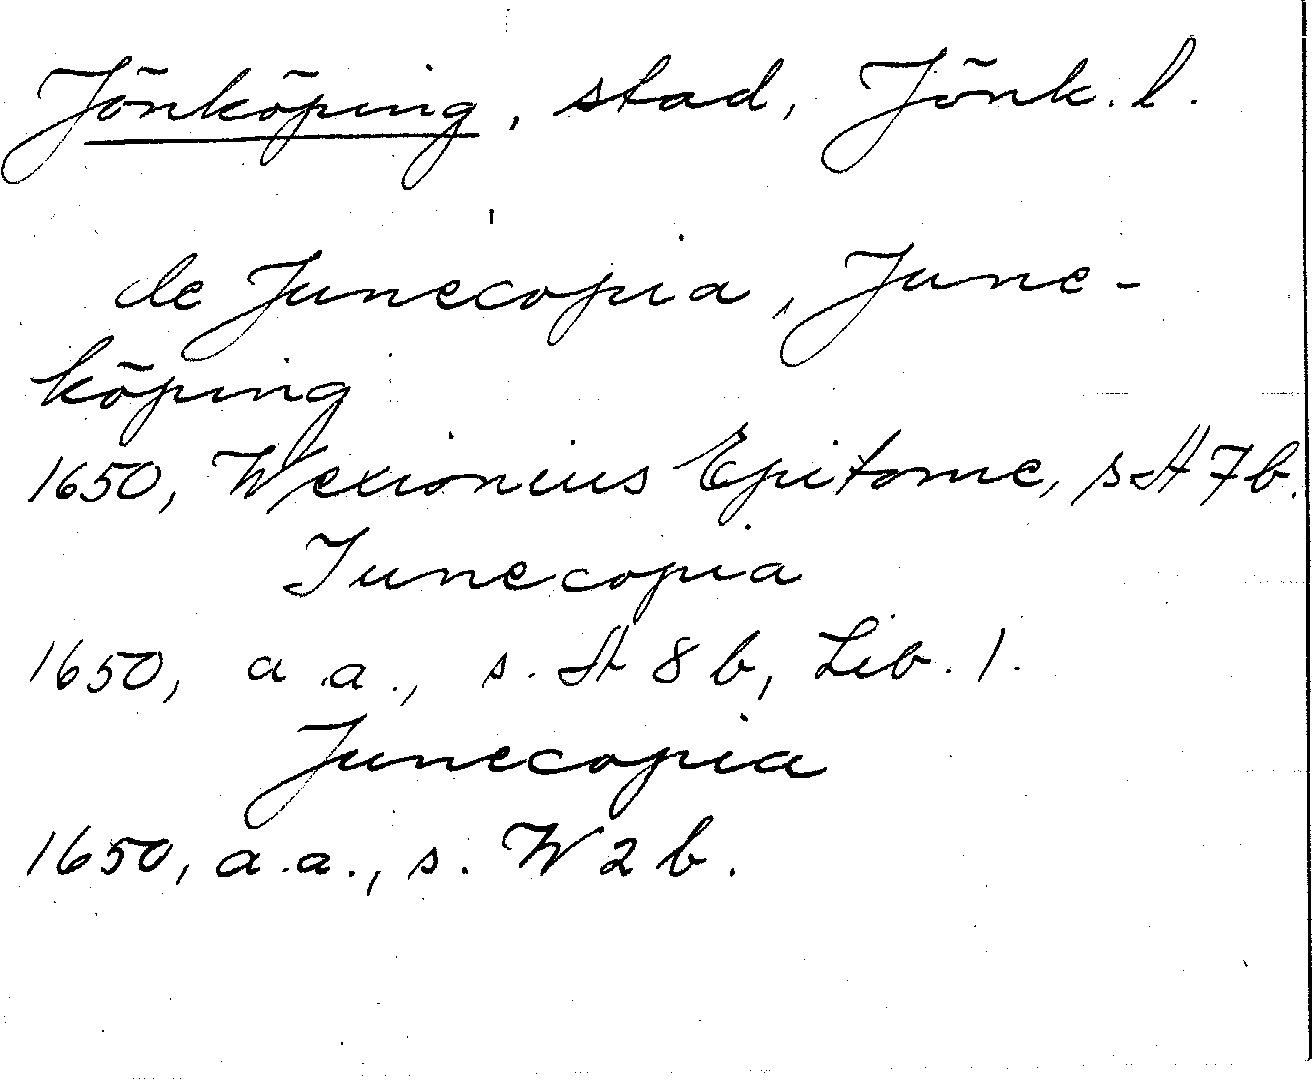 Jönköping, stad, Jönk. l.
de Junecopia, June-
köping
1650, Wexionius Epitome, s A 7 b.
Junecopia
1650, a.a., s. A 8 b, Lib. 1.
Junecopia
1650, a.a., s. W 2 b.